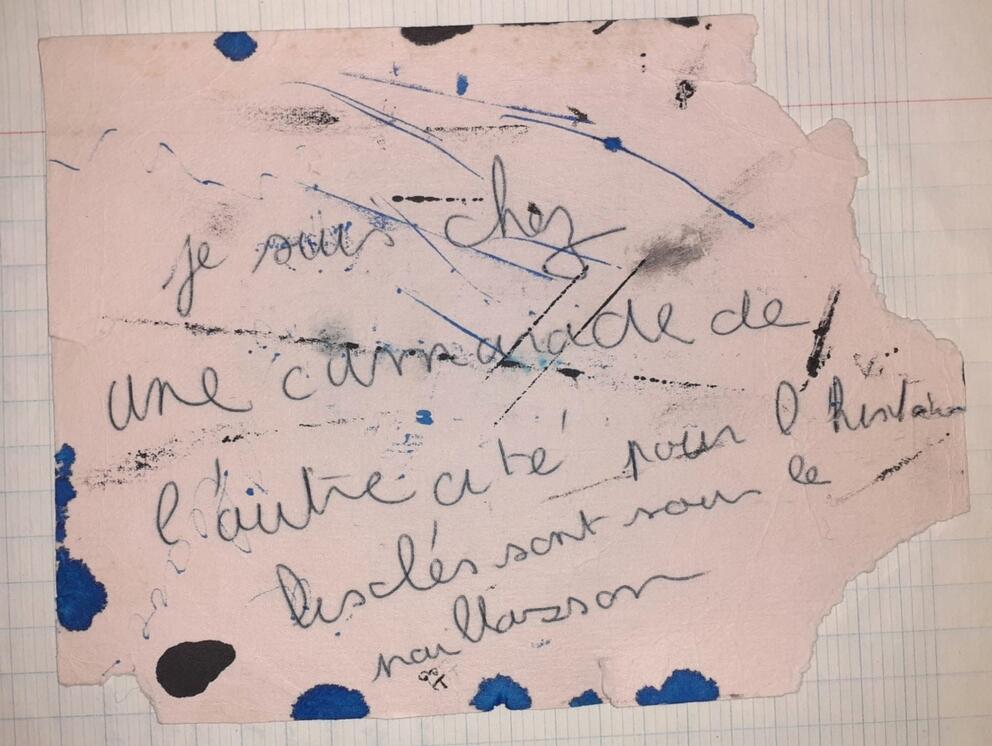 je suis chez
une camarade de
l'autre cité pour l'instant
les clés sont sous le
paillasson